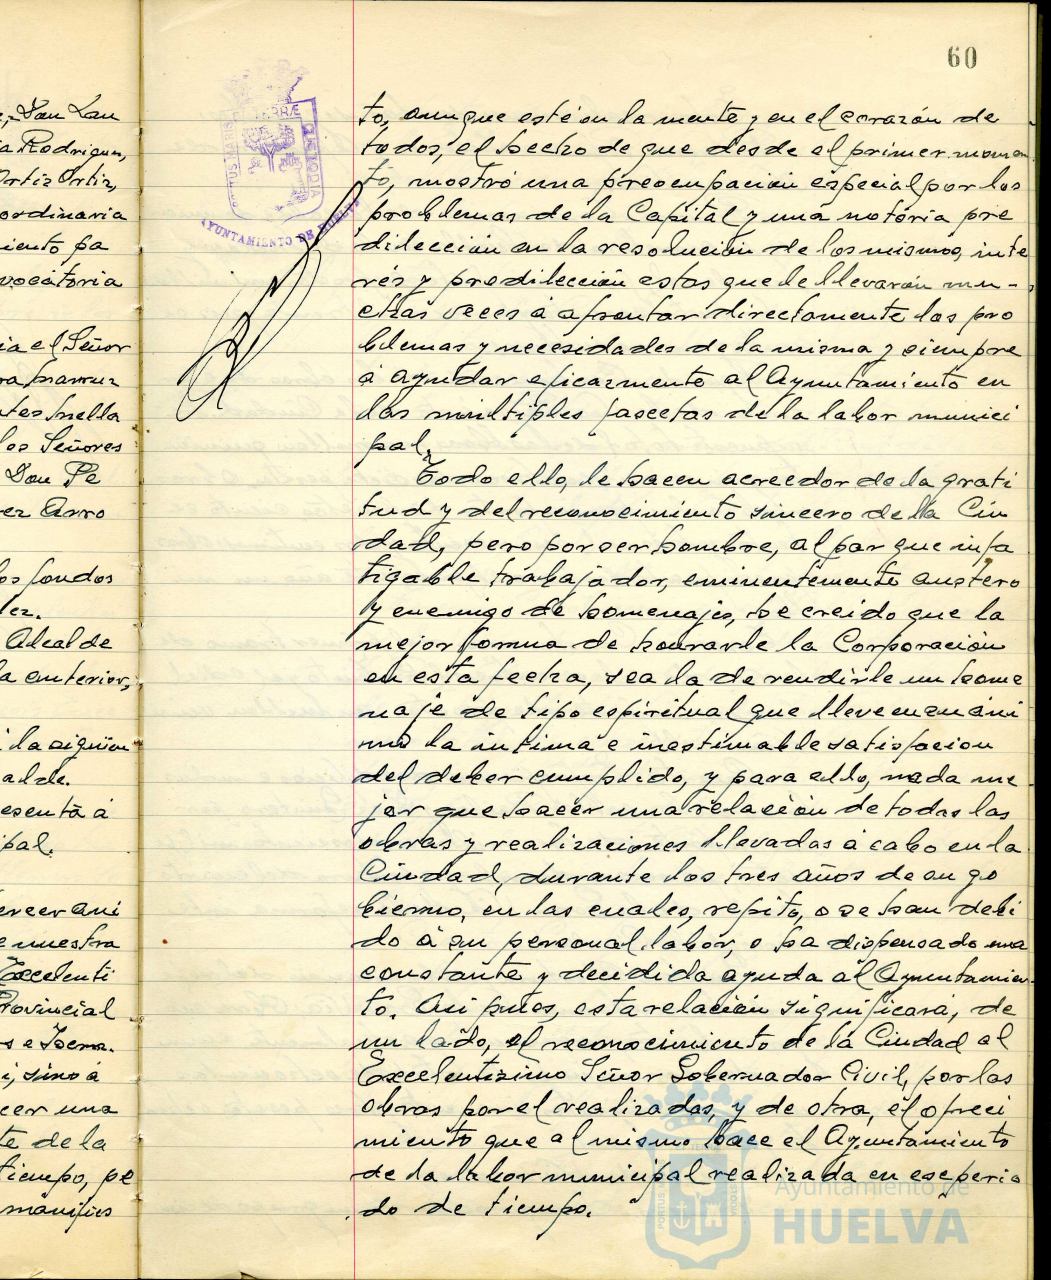 60
e, Don Lau
a Rodriguez,
Ortiz Ortiz,
ordinaria
iento pa
vocatoria
ia el Señor
ntes huella
los Señores
Don Pe
rez Arro
los fondos
ez.
Alcalde
la anterior,
i la siguien
alde.
esenta á
ipal.
ercer ani
e nuestra
Excelenti
Provincial
s e Herma.
i, sino á
cer una
te de la
tiempo, pe
manifies
PORTUS MARIS ET TERRÆ CUSTODIA
AYUNTAMIENTO DE HUELVA
to, aunque esté en la mente y en el corazón de
todos, el hecho de que desde el primer momen
to, mostró una preocupación especial por los
problemas de la Capital y una notória pre
dilección en la resolución de los mismos, inte
rés y predilección estas que le llevarón mu-
chas veces á afrontar directamente los pro
blemas y necesidades de la misma y siempre
á ayudar eficazmente al Ayuntamiento en
las múltiples fascetas de la labor munici
pal.
Todo ello, le hacen acreedor de la grati
tud y del reconocimiento sincero de la Ciu
dad, pero por ser hombre, al par que infa
tigable trabajador, eminentemente austero
y enemigo de homenajes, he creido que la
mejor forma de honrarle la Corporación
en esta fecha, sea la de rendirle un home
naje de tipo espíritual que lleve en su áni
mo la íntima e inestimable satisfacion
del deber cumplido, y para ello, nada me
jor que hacer una relación de todas las
obras y realizaciones llevadas á cabo en la
Ciudad, durante los tres años de su go
bierno, en las cuales, repito, o se han debi
do á su personal labor, o ha dispensado una
constante y decidida ayuda al Ayuntamien-
to. Asi pues, esta relación significará, de
un lado, el reconocimiento de la Ciudad al
Excelentisimo Señor Gobernador Civil, por las
obras por el realizadas, y de otra, el ofreci
miento que al mismo hace el Ayuntamiento
de la labor municipal realizada en ese perio
do de tiempo.
Ayuntamiento de
HUELVA